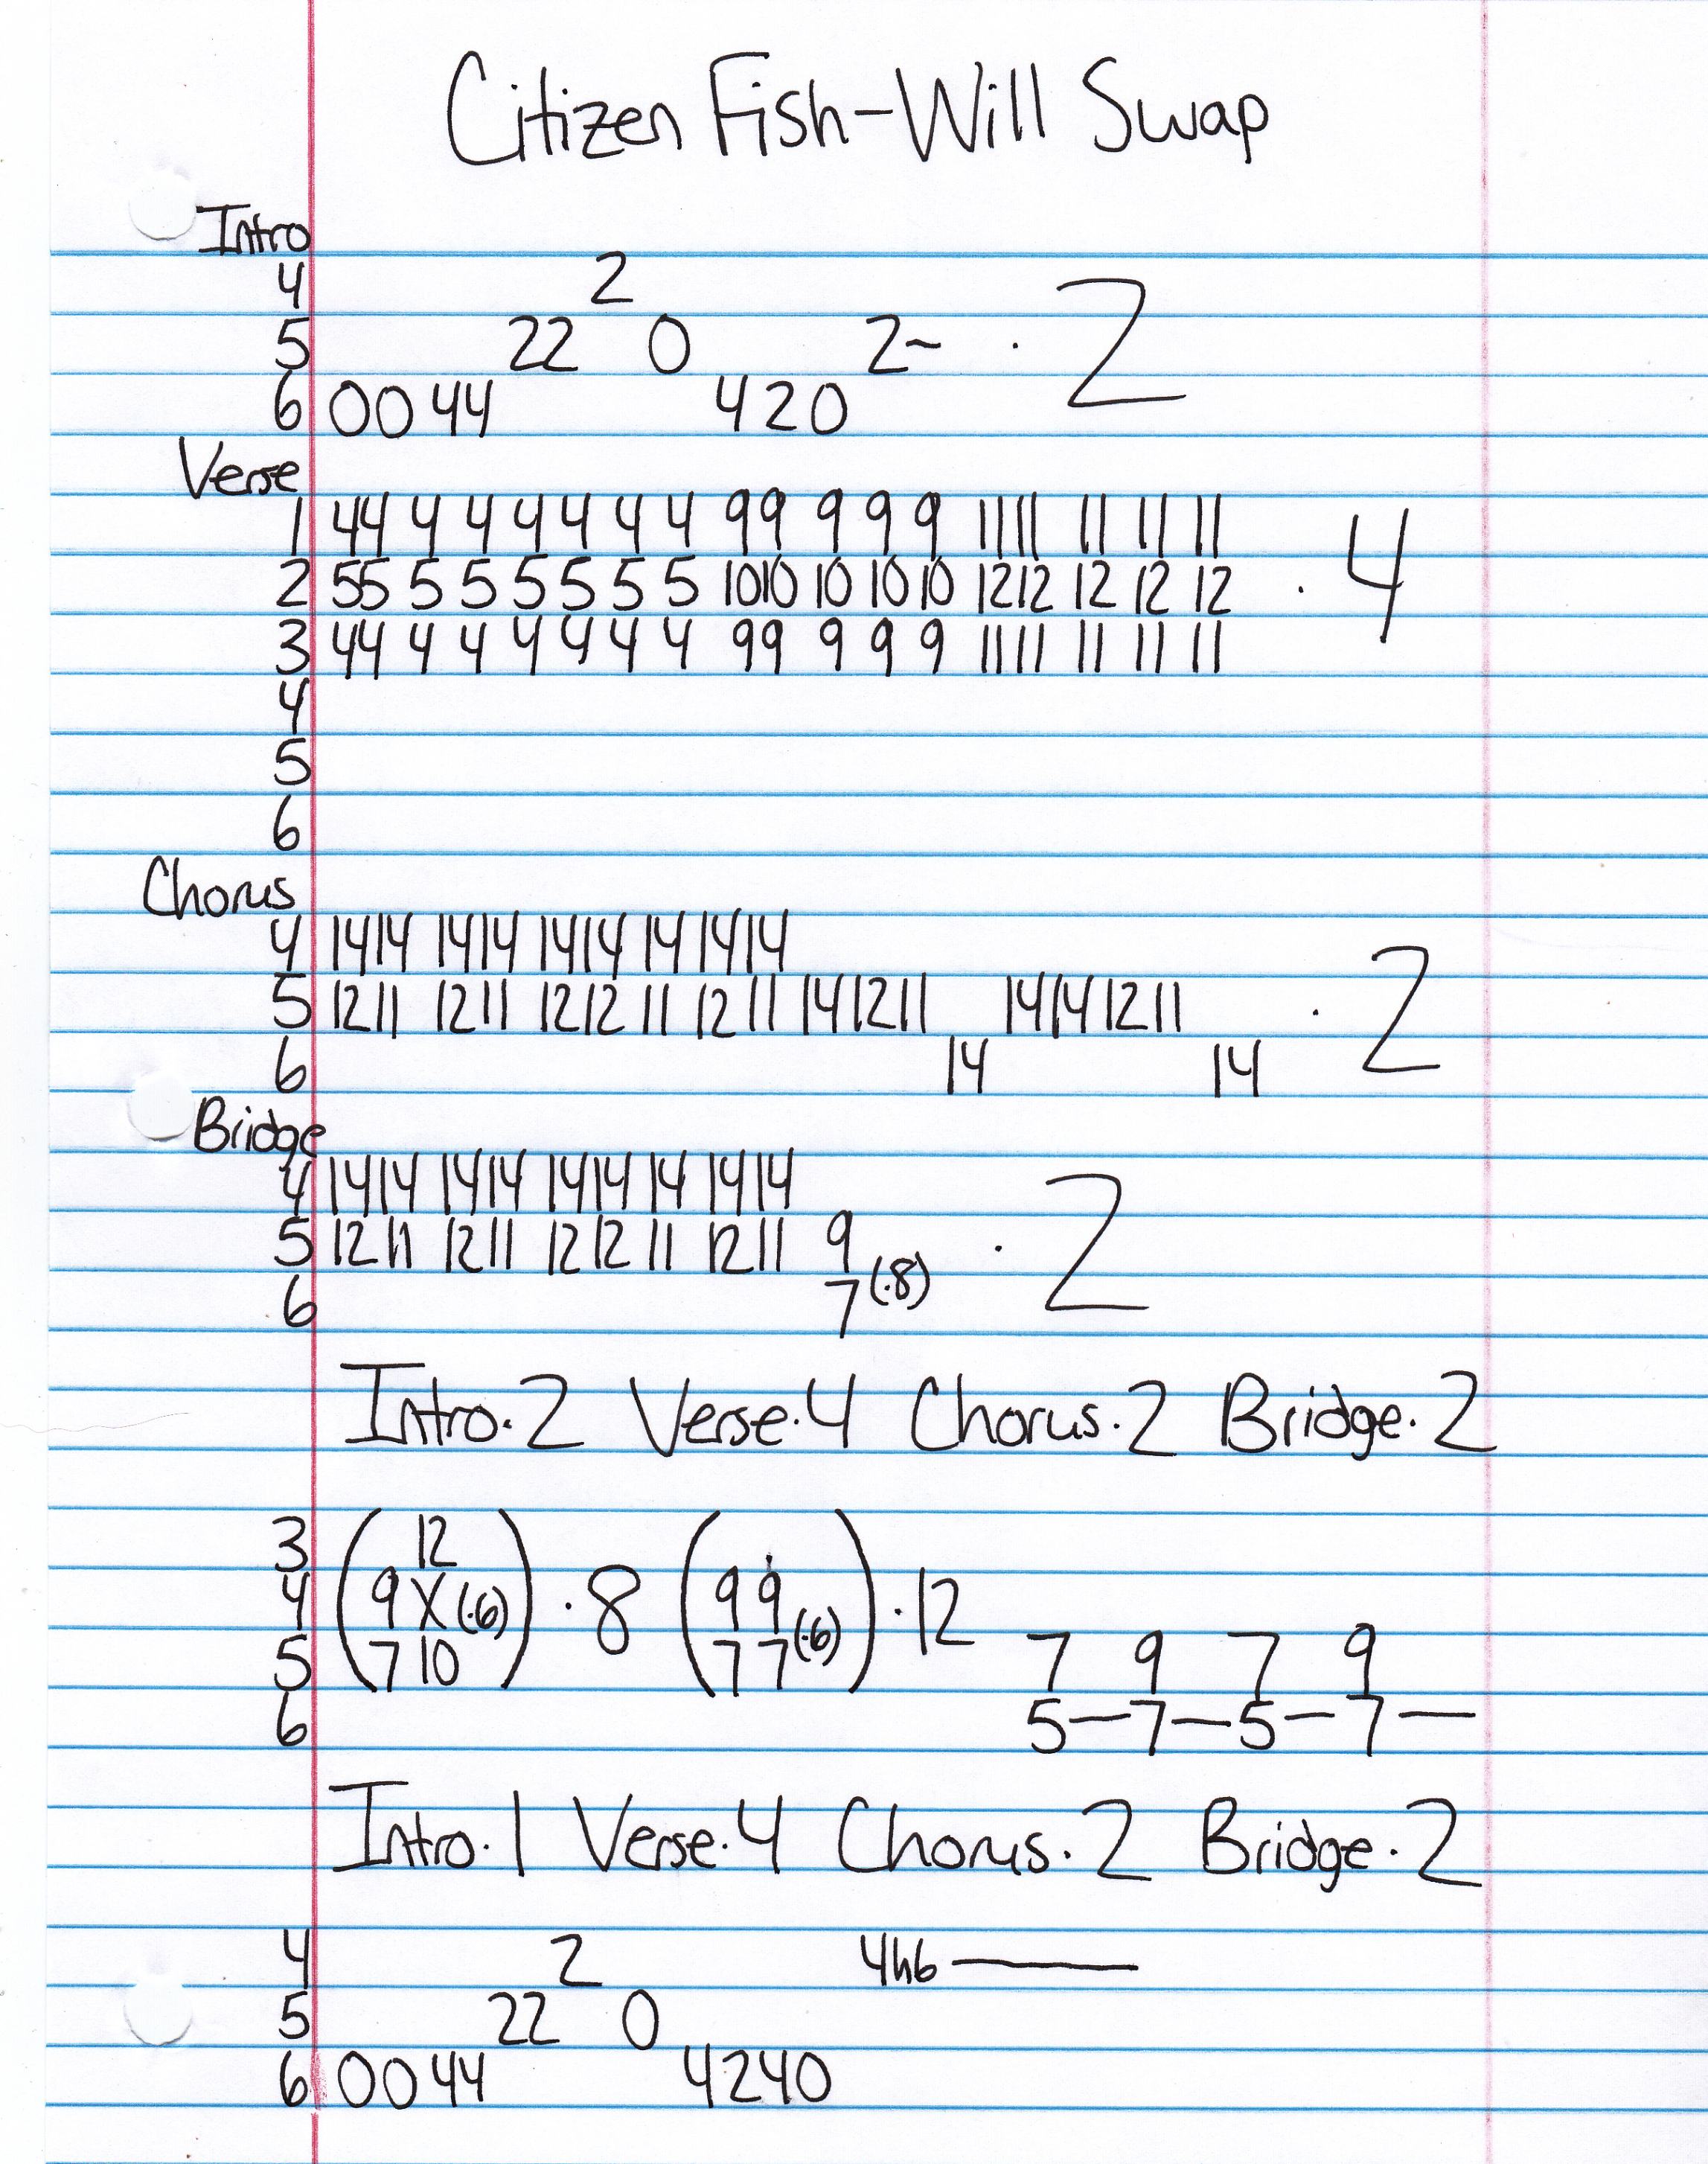 Citizen Fish-Will Swap
Intro
4 2
5 22 0 2~ · 2
6 0044 420
Verse
1 44 4 4 4 4 4 4 99 9 9 9 1111 11 11 11
2 55 5 5 5 5 5 5 1010 10 10 10 1212 12 12 12 · 4
3 44 4 4 4 4 4 4 99 9 9 9 1111 11 11 11
4
5
6
Chorus
4 1414 1414 1414 14 1414
5 1211 1211 1212 11 1211 141211 14141211 · 2
6 14 14
Bridge
4 1414 1414 1414 14 1414
5 1211 1211 1212 11 1211 9 · 2
6 7 (·8)
Intro·2 Verse·4 Chorus·2 Bridge·2
3 ( 12 ) ( )
4 9 X (·6) · 8 9 9 · 12
5 7 10 7 7 (·6) 7 9 7 9
6 5—7—5—7—
Intro·1 Verse·4 Chorus·2 Bridge·2
4 2 4h6———
5 22 0
6 0044 4240